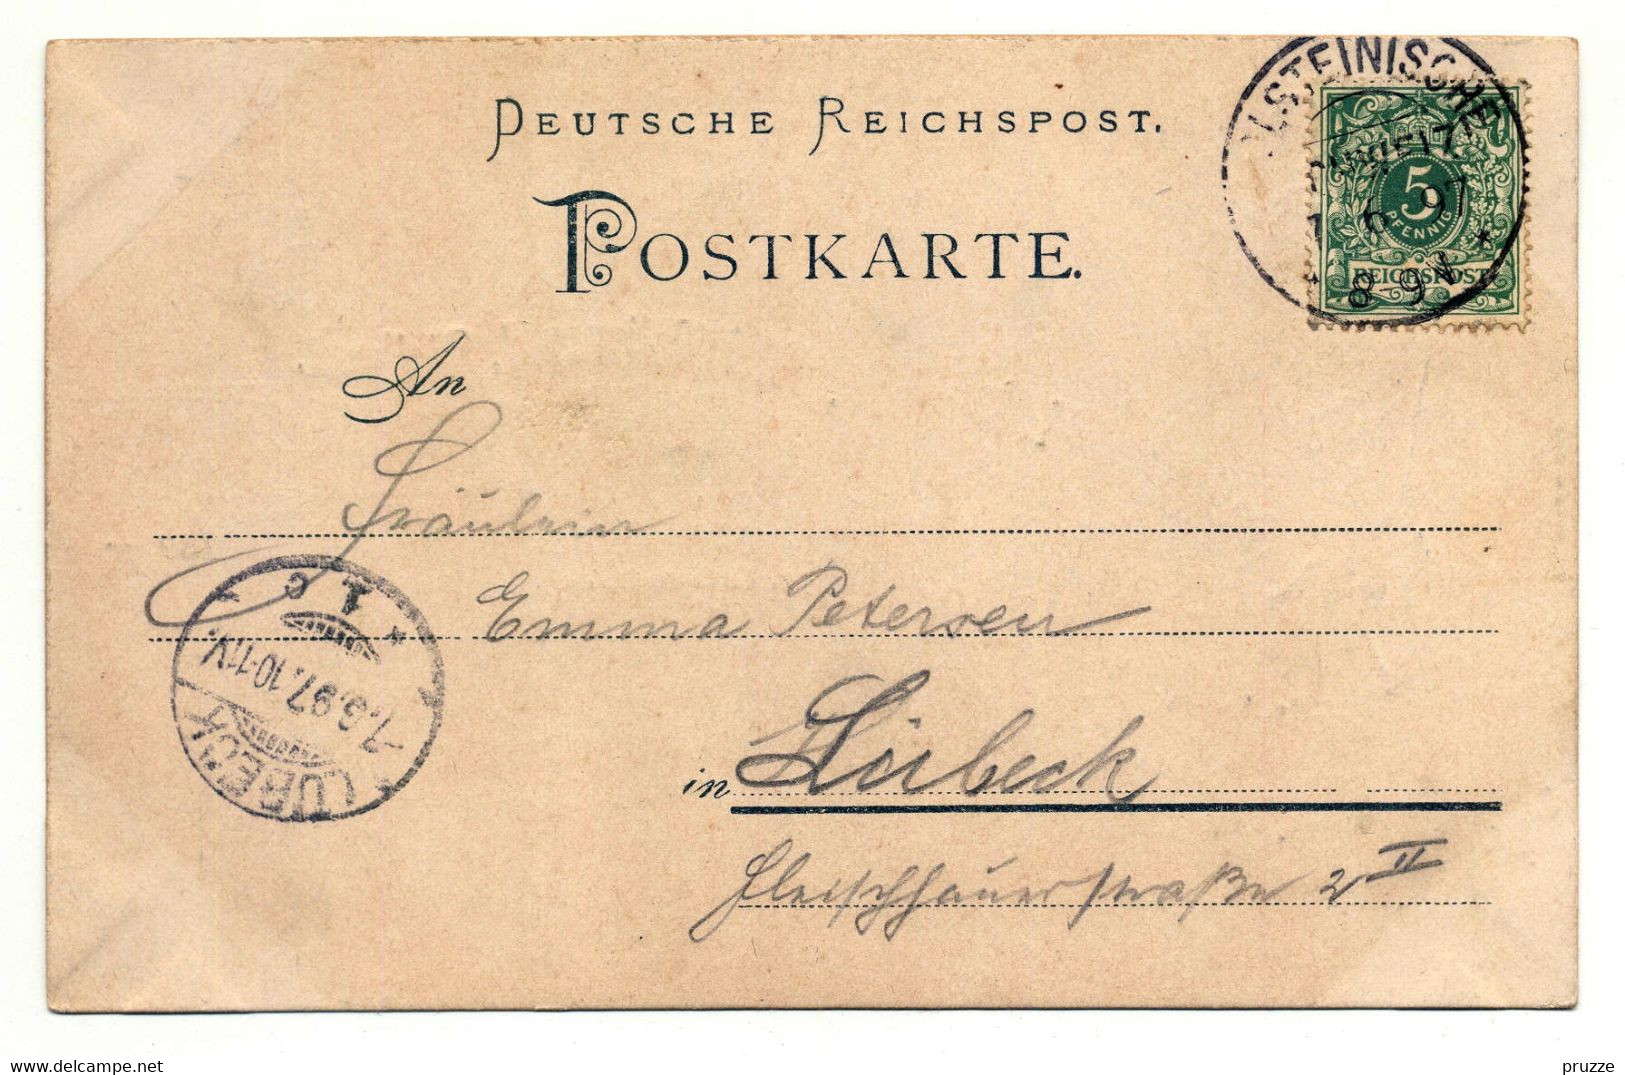 DEUTSCHE REICHSPOST.
POSTKARTE.
LSTEINISCHE
6 97
8-9 V
5
PFENNIG
REICHSPOST
An
Fräulein
Emma Petersen
in Lübeck
Fleischhauerstraße 2 II
LÜBECK
7.6.97. 10-11V.
* 1 c
delcampe.net
pruzze